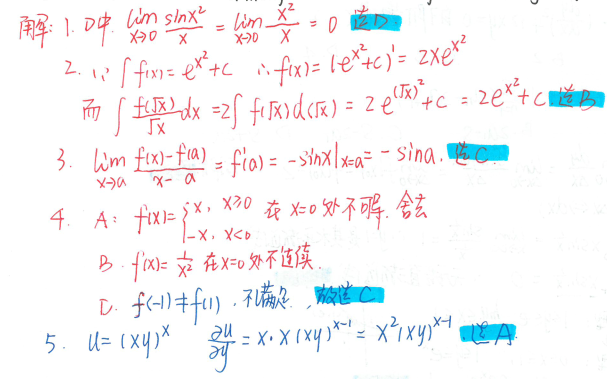 解: 1. D中. lim x→0 sinx²/x = lim x→0 x²/x = 0 选D.
2. ∵ ∫f(x)= e^{x²}+c ∴ f(x)= (e^{x²}+c)' = 2xe^{x²}
而 ∫ f(√x)/√x dx =2∫ f(√x)d(√x) = 2e^{(√x)²}+c = 2e^{x²}+c. 选B
3. lim x→a f(x)-f(a)/x-a = f'(a) = -sinx|x=a = -sina. 选C.
4. A: f(x)= {x, x≥0 在x=0处不可导. 舍去
-x, x<0
B. f(x)= 1/x² 在x=0处不连续.
D. f(-1)≠f(1). 不满足. 故选C
5. u=(xy)^x ∂u/∂y = x·x(xy)^{x-1} = x²(xy)^{x-1} 选A.